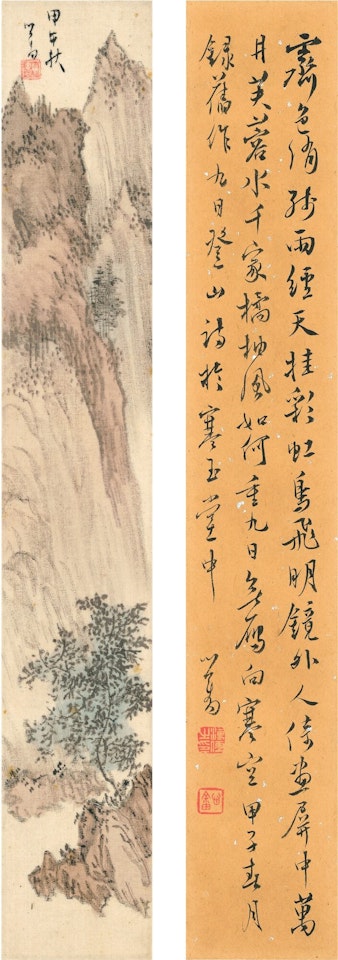 霽色消殘雨經天挂彩虹鳥飛明鏡外人倚畫屏中萬
井芙蓉水千家橘柚風如何重九日無雁向寒空甲子春月
錄舊作九日登山詩於寒玉堂中
心畬
甲午秋
心畬